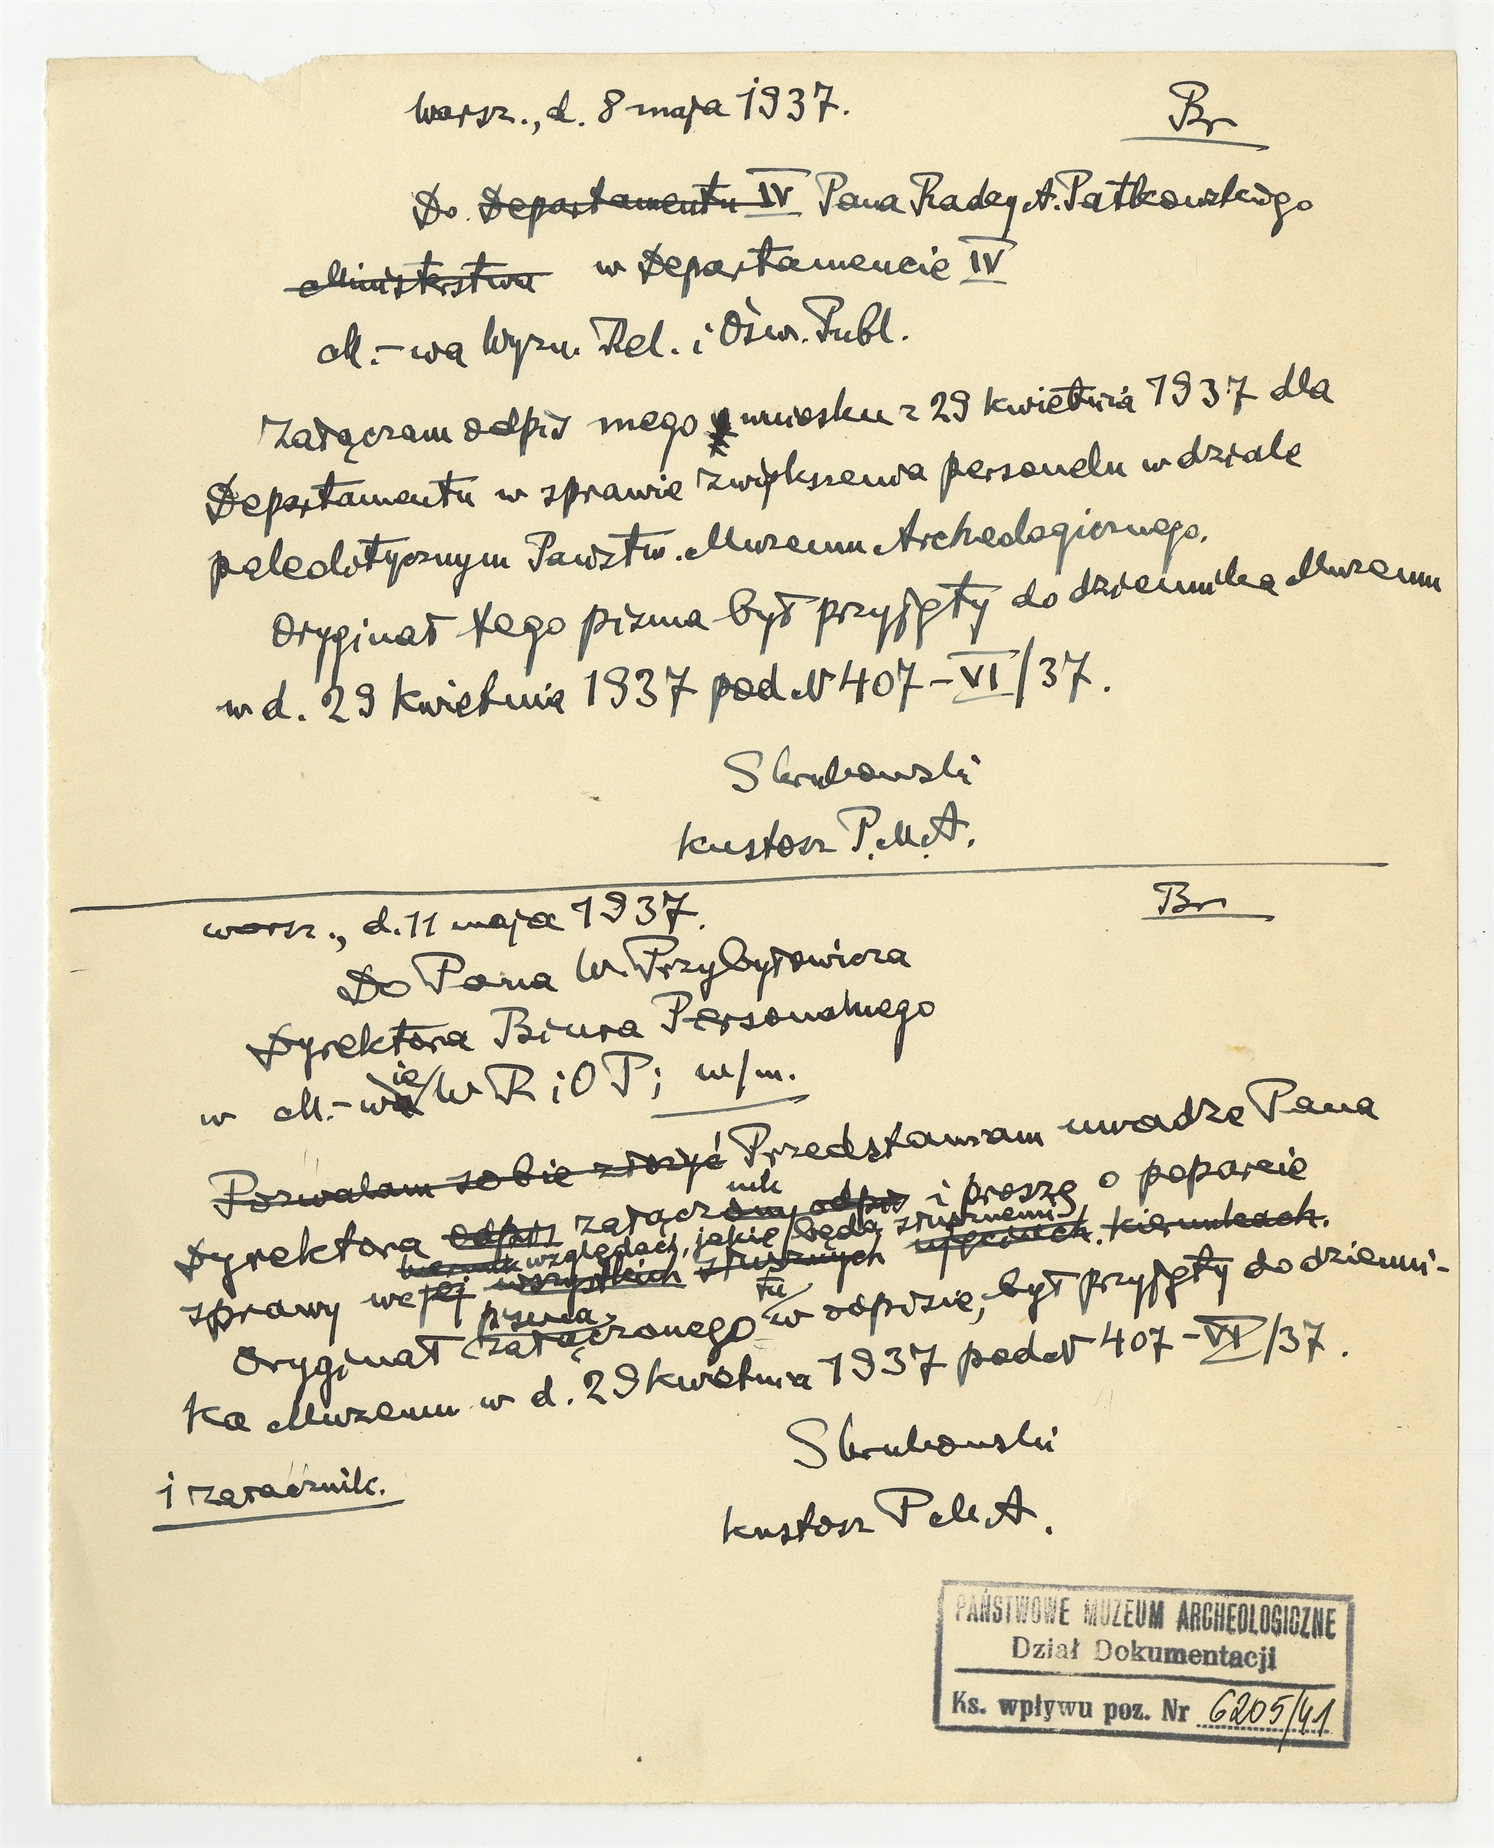 Warsz., d. 8 maja 1937.
Br
Do Departamentu IV Pana Radcy A. Patkowskiego
Ministerstwa w Departamencie IV
M.-wa Wyzn. Rel. i Ośw. Publ.
Załączam odpis mego wniosku z 29 kwietnia 1937 dla
Departamentu w sprawie zwiększenia personelu w dziale
paleolitycznym Państw. Muzeum Archeologicznego.
Oryginał tego pisma był przyjęty do dziennika Muzeum
w d. 29 kwietnia 1937 pod N 407-VI/37.
SKrukowski
kustosz P.M.A.
Warsz., d. 11 maja 1937.
Br
Do Pana W. Przybyłowicza
Dyrektora Biura Personalnego
ie
w M.-wa W R i O P; w/m.
Pozwalam sobie złożyć Przedstawiam uwadze Pana
nik
Dyrektora odpis załączony odpis i proszę o poparcie
względach, jakie będą słusznemi
sprawy we jej wszystkich słusznych kierunkach.
pisma tu
Oryginał załączonego w odpisie, był przyjęty do dzienni-
ka Muzeum w d. 29 kwietnia 1937 pod N 407-VI/37.
SKrukowski
1 załącznik.
kustosz P M A.
PAŃSTWOWE MUZEUM ARCHEOLOGICZNE
Dział Dokumentacji
Ks. wpływu poz. Nr 6205/41